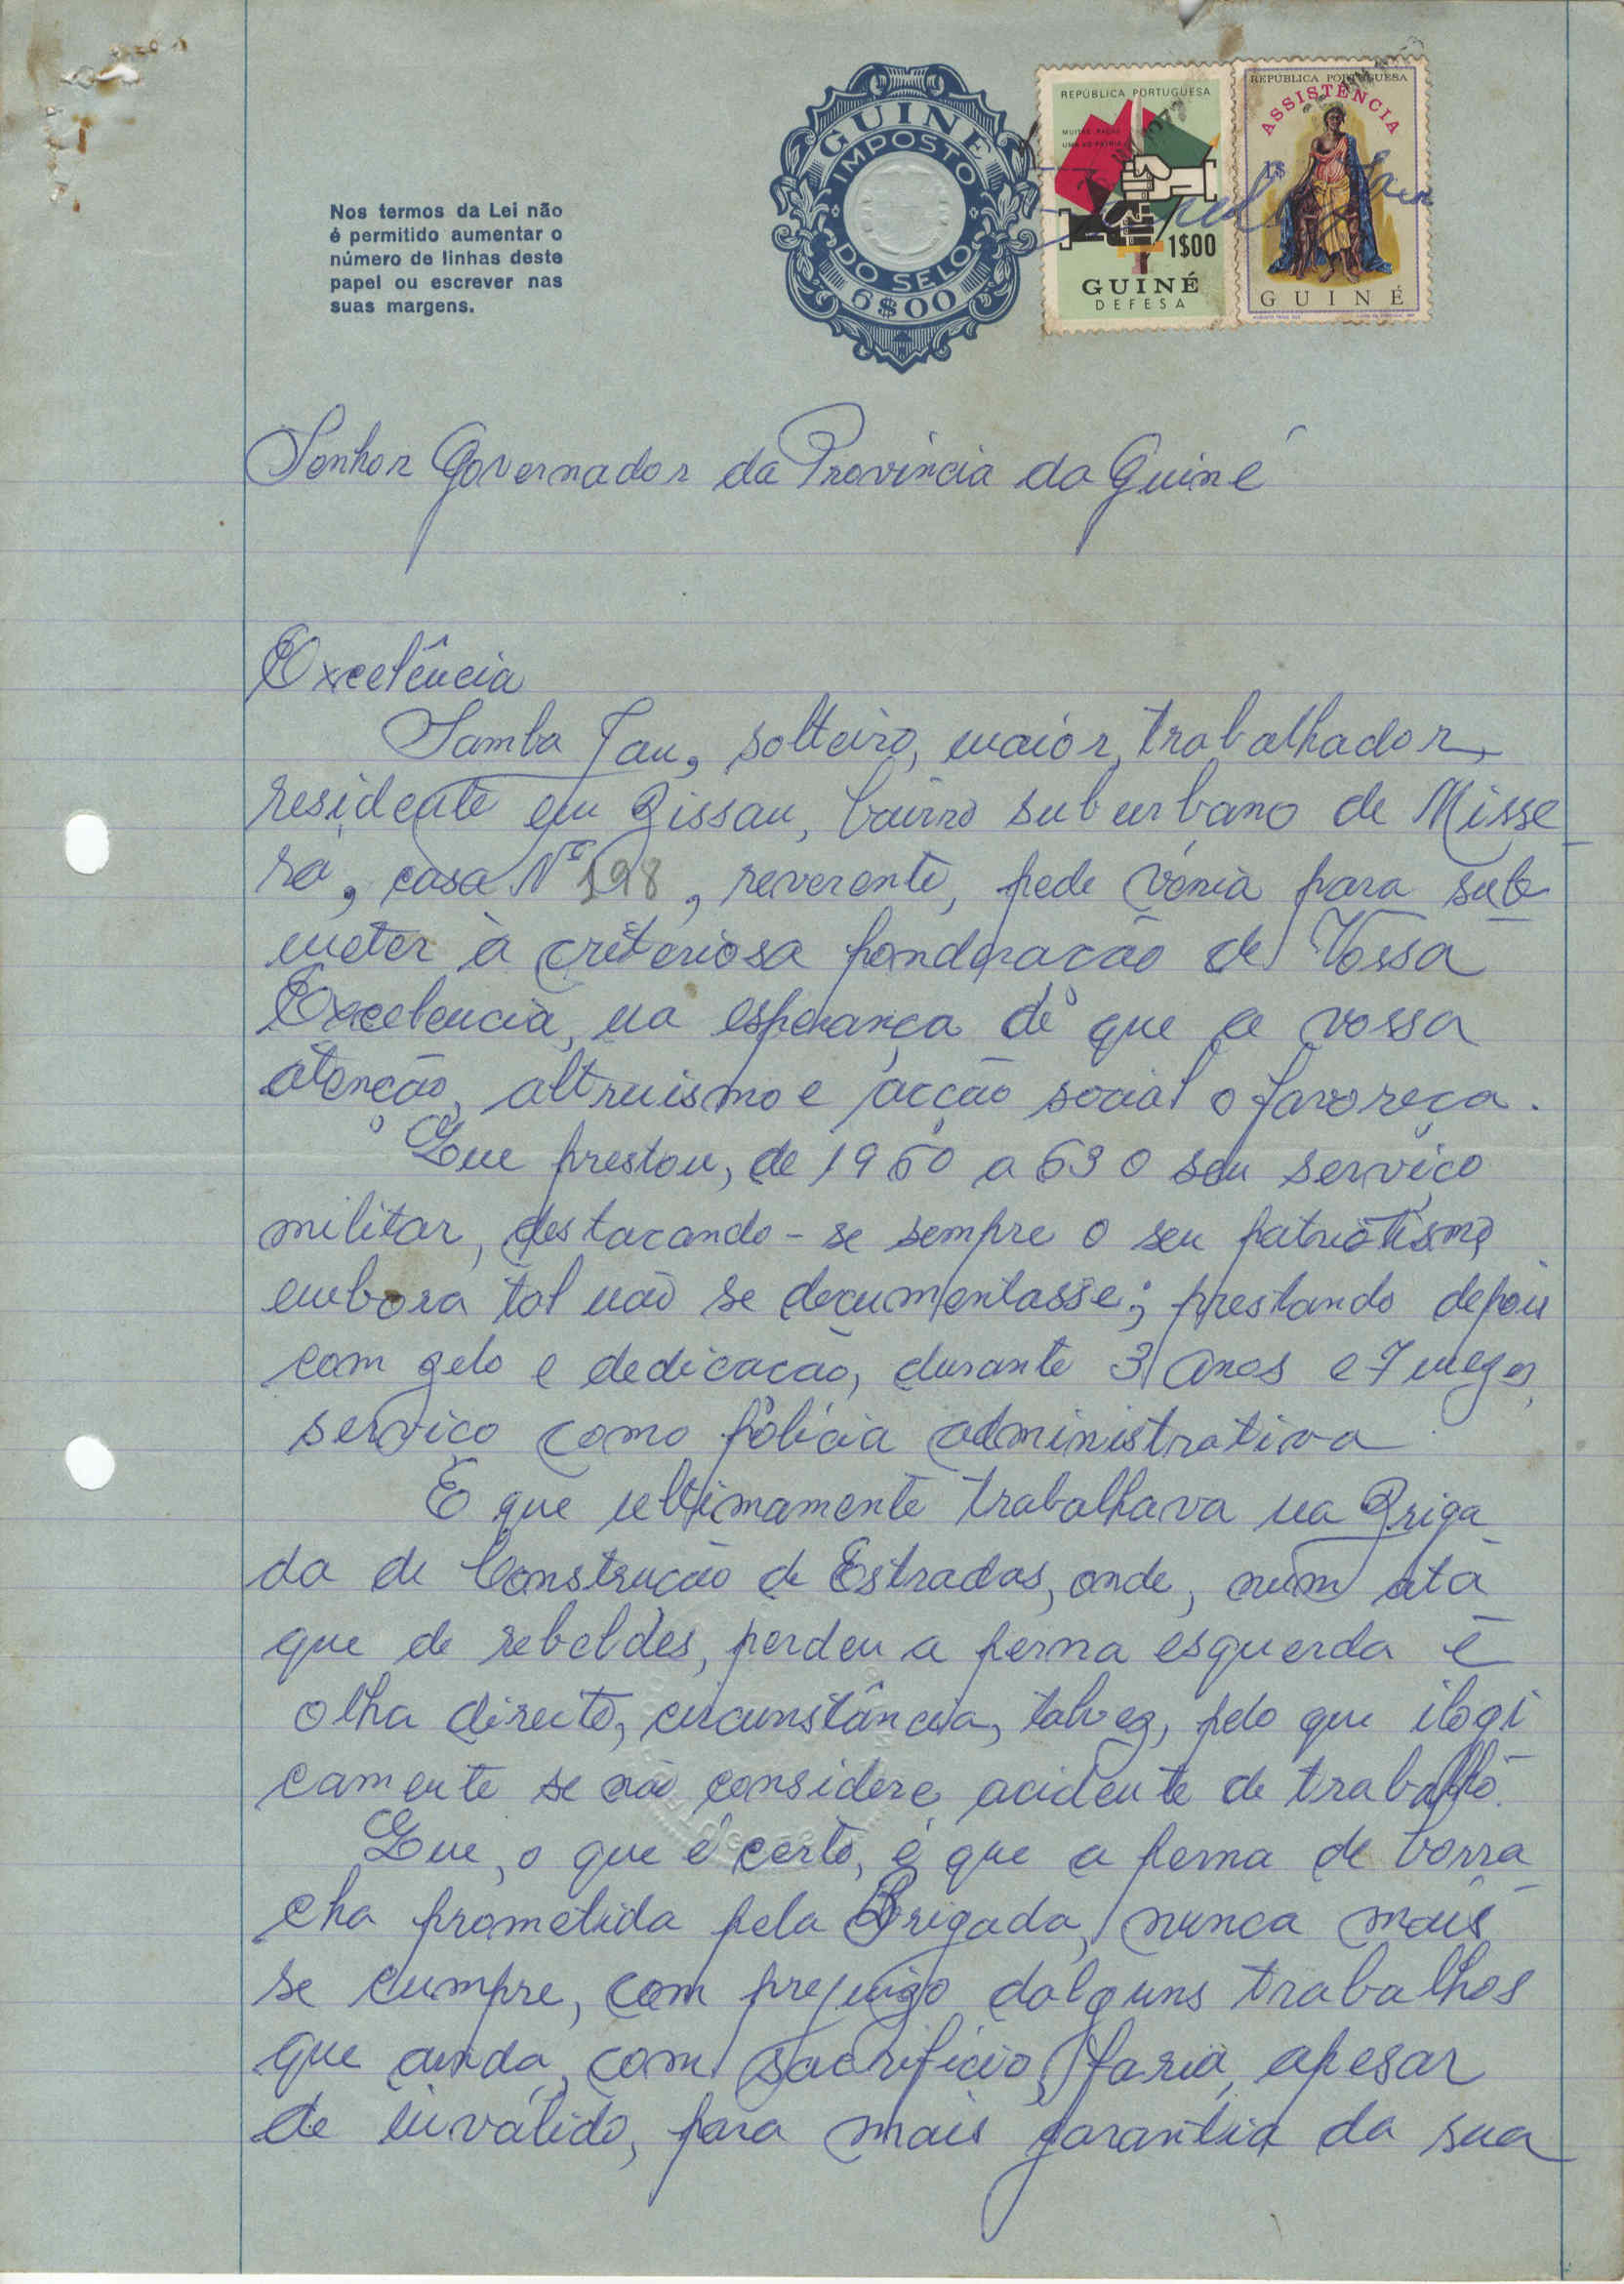 Nos termos da Lei não
é permitido aumentar o
número de linhas deste
papel ou escrever nas
suas margens.
GUINÉ
IMPOSTO
DO SELO
6$00
REPÚBLICA PORTUGUESA
MUITAS RAÇAS
UMA SÓ PÁTRIA
1$00
GUINÉ
DEFESA
REPÚBLICA PORTUGUESA
ASSISTÊNCIA
1$
GUINÉ
Senhor Governador da Província da Guiné
Excelência
Samba Jau, solteiro, maior, trabalhador,
residente em Bissau, bairro suburbano de Misse
rá, casa Nº 198, reverente, pede vénia para sub
meter à criteriosa ponderação de Vossa
Excelencia, na esperança de que a vossa
atenção, altruismo e acção social o favoreça.
Que prestou, de 1960 a 63 o seu serviço
militar, destacando-se sempre o seu patriotismo,
embora tal não se documentasse; prestando depois
com zelo e dedicação, durante 3 anos e 7 mezes,
serviço como polícia administrativa.
E que ultimamente trabalhava na Briga
da de Construção de Estradas, onde, num ata
que de rebeldes, perdeu a perna esquerda e
olha direito, circunstância, talvez, pelo que ilogi
camente se não considere acidente de trabalho.
Que, o que é certo, é que a perna de borra
cha prometida pela Brigada, nunca mais
se cumpre, com prejuizo dalguns trabalhos
que ainda, com sacrifício, faria, apesar
de inválido, para mais garantia da sua